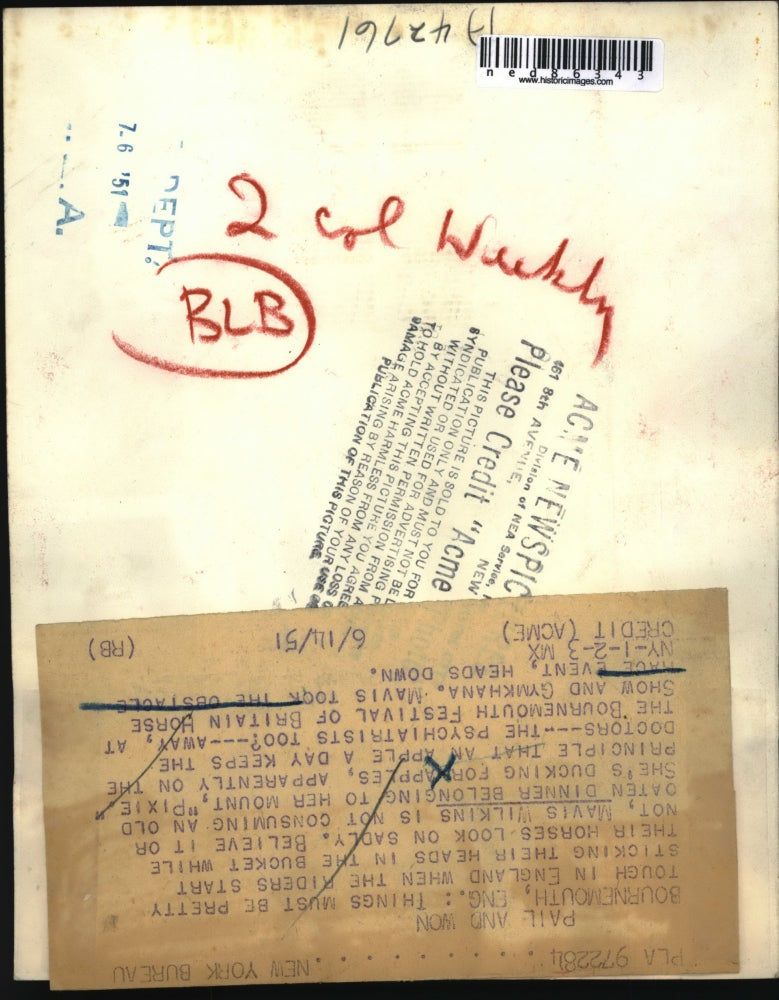 A42761
ned86343
www.historicimages.com
DEPT.
7-6 '51
A.
2 col Weekly
BLB
ACME NEWSPIC
Division of NEA Service,
461 8th AVENUE, NEW
Please Credit "Acme
THIS PICTURE IS SOLD TO YOU FOR
PUBLICATION ONLY AND MUST NOT BE
SYNDICATED OR USED FOR ADVERTISING P
WITHOUT WRITTEN PERMISSION FROM A
BY ACCEPTING THIS PICTURE YOU AGREE
TO HOLD ACME HARMLESS FROM ANY LOSS O
DAMAGE ARISING BY REASON OF YOUR USE
PUBLICATION OF THIS PICTURE
PLA 972284 . . . . . . . . . NEW YORK BUREAU
PAIL AND WON
BOURNEMOUTH, ENG.: THINGS MUST BE PRETTY
TOUGH IN ENGLAND WHEN THE RIDERS START
STICKING THEIR HEADS IN THE BUCKET WHILE
THEIR HORSES LOOK ON SADLY. BELIEVE IT OR
NOT, MAVIS WILKINS IS NOT CONSUMING AN OLD
OATEN DINNER BELONGING TO HER MOUNT, "PIXIE"
SHE'S DUCKING FOR APPLES, APPARENTLY ON THE
PRINCIPLE THAT AN APPLE A DAY KEEPS THE
DOCTORS---THE PSYCHIATRISTS TOO?---AWAY, AT
THE BOURNEMOUTH FESTIVAL OF BRITAIN HORSE
SHOW AND GYMKHANA. MAVIS TOOK THE OBSTACLE
RACE EVENT, HEADS DOWN.
NY-1-2-3 MX
CREDIT (ACME) 6/14/51 (RB)
X